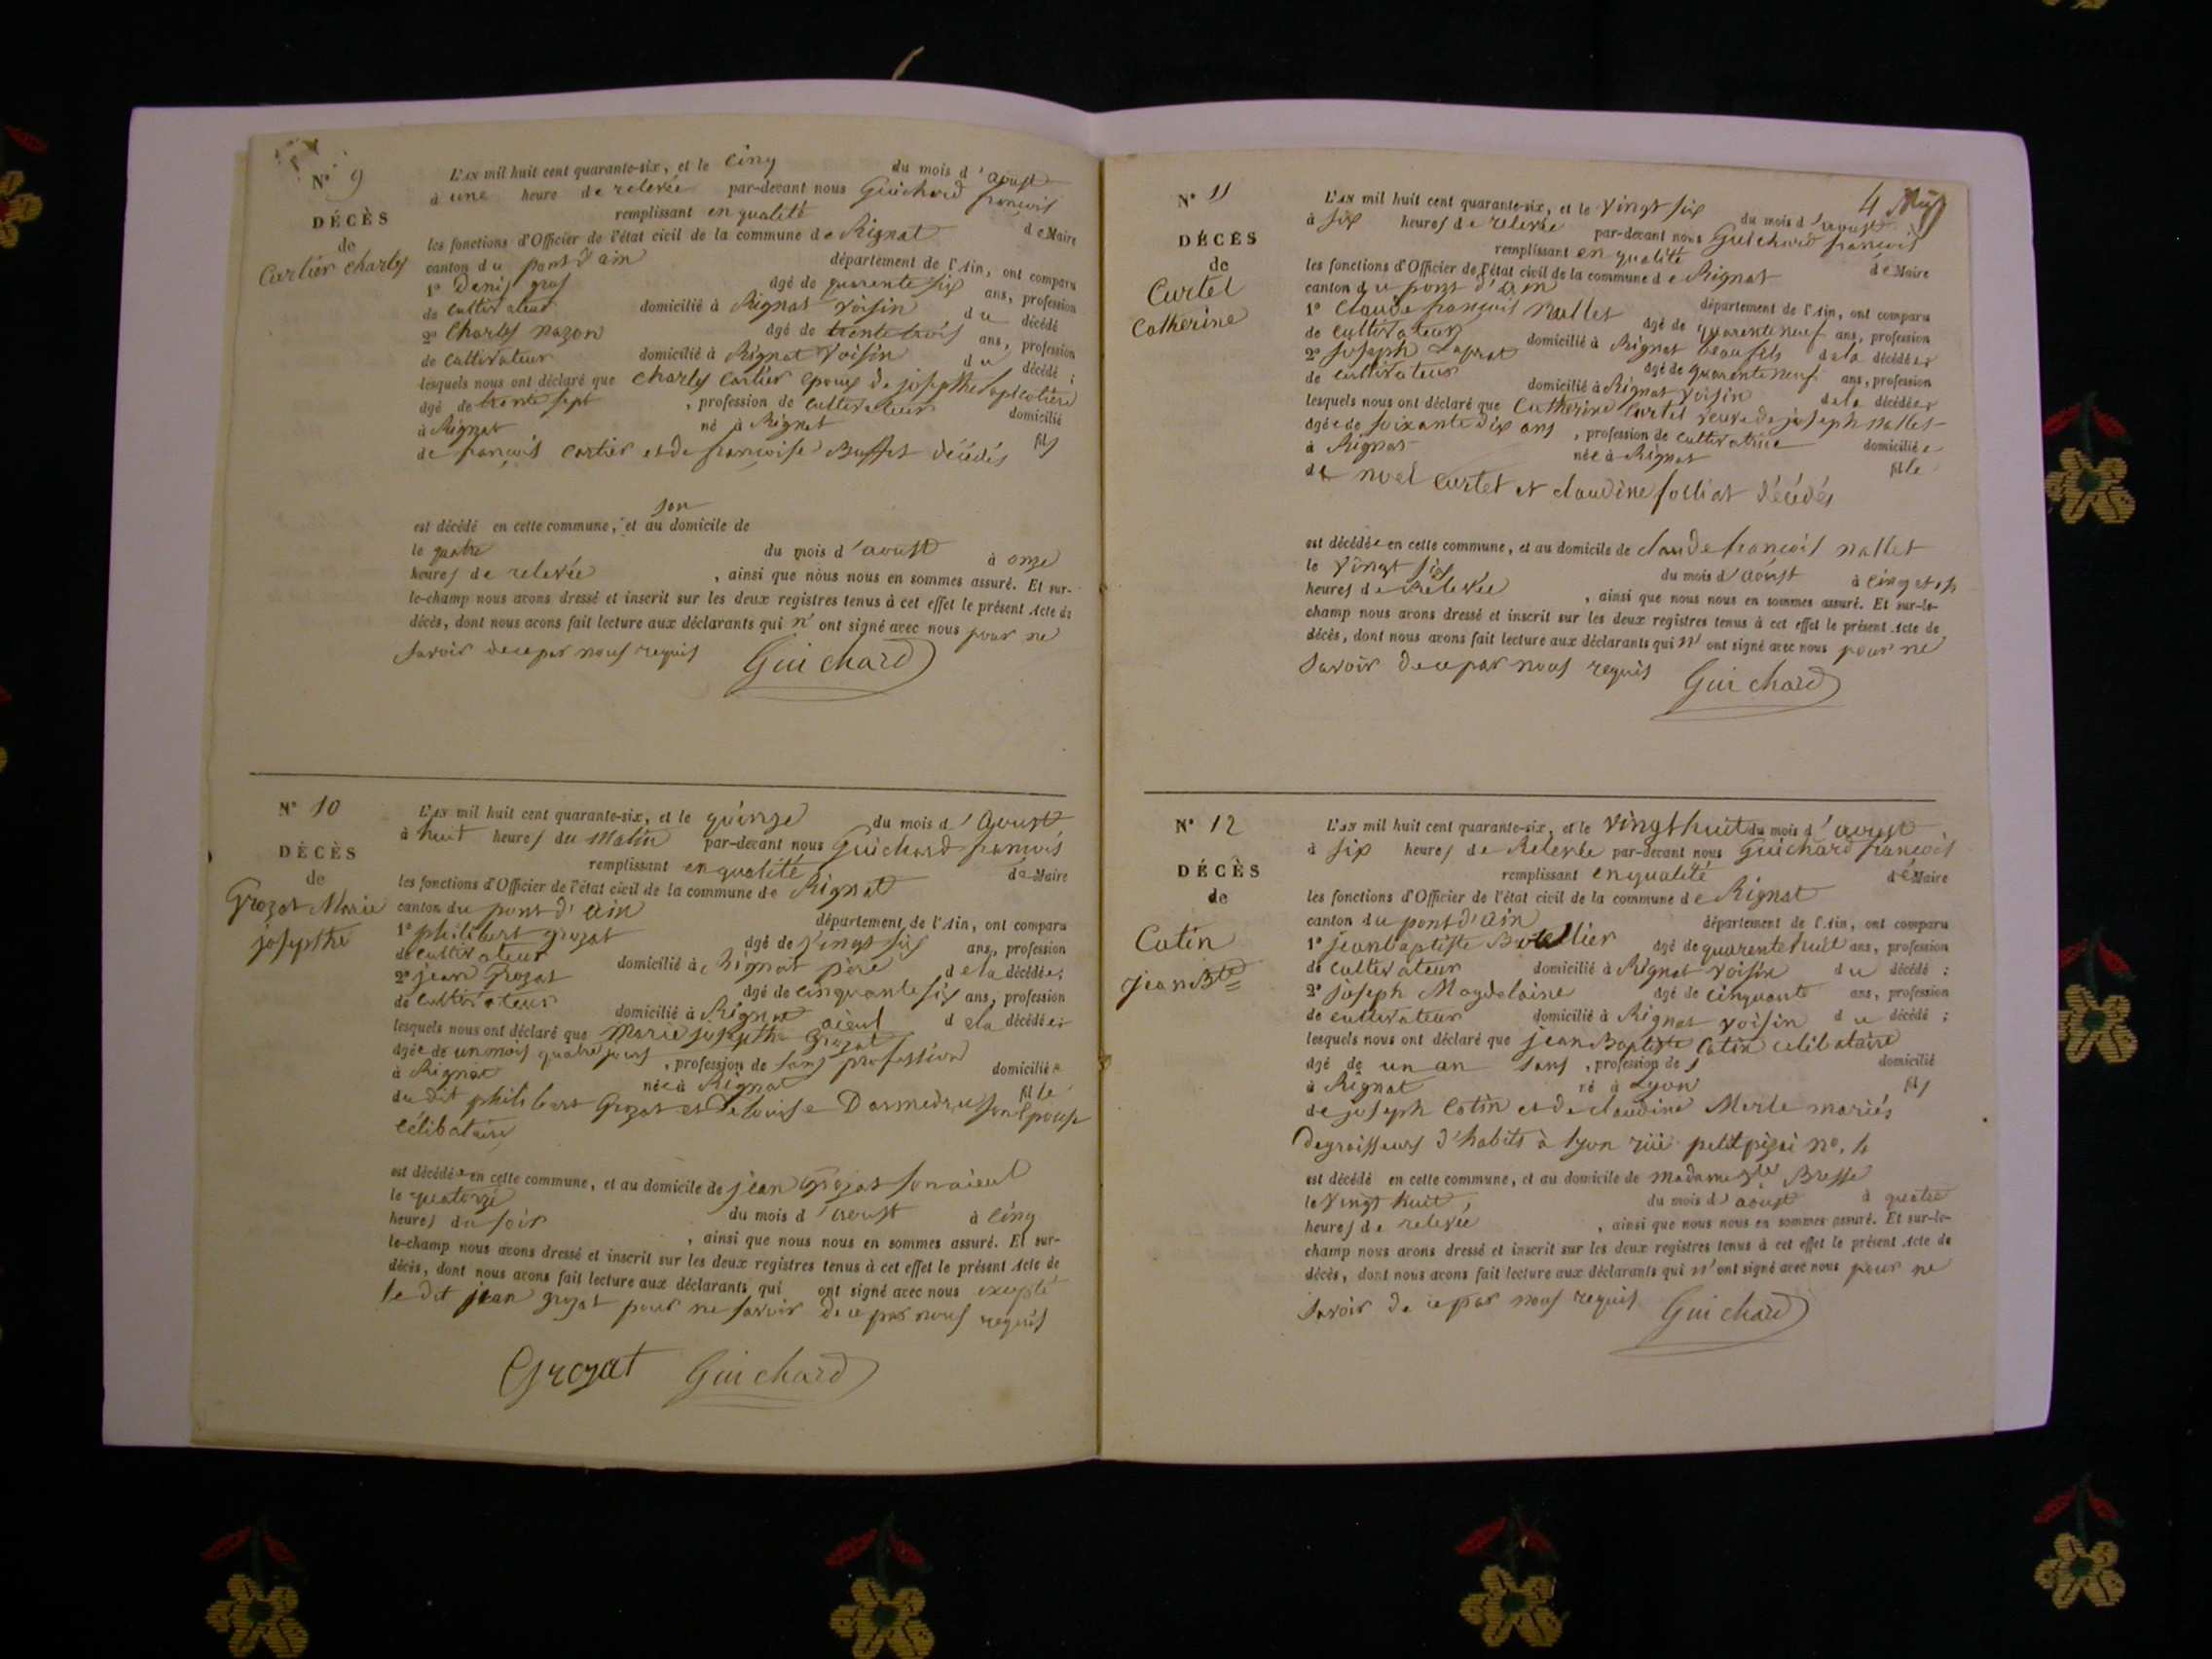 N° 9
DÉCÈS
de
Cartier Charles
L'AN mil huit cent quarante-six, et le cinq du mois d'aoust
à une heure de relevée par-devant nous Guichard françois
remplissant en qualité de Maire
les fonctions d'Officier de l'état civil de la commune de Rignat
canton du pont d'ain département de l'Ain, ont comparu
1° Denis gros âgé de quarente six ans, profession
de cultivateur domicilié à Rignat voisin du décédé
2° Charles nazon âgé de trente trois ans, profession
de cultivateur domicilié à Rignat voisin du décédé ;
lesquels nous ont déclaré que Charles Cartier epoux de josepthe
âgé de trente sept , profession de cultivateur domicilié
à Rignat né à Rignat fils
de françois cartier et de françoise Buffet décédés
son
est décédé en cette commune, et au domicile de
le quatre du mois d'aoust à onze
heures de relevée , ainsi que nous nous en sommes assuré. Et sur-
le-champ nous avons dressé et inscrit sur les deux registres tenus à cet effet le présent Acte de
décès, dont nous avons fait lecture aux déclarants qui n'ont signé avec nous pour ne
savoir de ce par nous requis Guichard
N° 10
DÉCÈS
de
Grozat Marie
josepthe
L'AN mil huit cent quarante-six, et le quinze du mois d'Aoust
à huit heures du matin par-devant nous Guichard françois
remplissant en qualité de Maire
les fonctions d'Officier de l'état civil de la commune de Rignat
canton du pont d'ain département de l'Ain, ont comparu
1° philibert grozat âgé de vingt six ans, profession
de cultivateur domicilié à Rignat père de la décédée;
2° jean Grozat âgé de cinquante six ans, profession
de cultivateur domicilié à Rignat aieul de la décédée;
lesquels nous ont déclaré que Marie josepthe Grozat
âgée de un mois quatre jours , profession de sans profession domiciliée
à Rignat née à Rignat fille
du dit philibert Grozat et de louise son épouse
célibataire
est décédée en cette commune, et au domicile de jean Grozat son aieul
le quatorze du mois d'aoust à cinq
heures du soir , ainsi que nous nous en sommes assuré. Et sur-
le-champ nous avons dressé et inscrit sur les deux registres tenus à cet effet le présent Acte de
décès, dont nous avons fait lecture aux déclarants qui ont signé avec nous excepté
le dit jean grozat pour ne savoir de ce par nous requis
Grozat Guichard
4
N° 11
DÉCÈS
de
Curtet
Catherine
L'AN mil huit cent quarante-six, et le vingt six du mois d'aoust
à six heures de relevée par-devant nous Guichard françois
remplissant en qualité de Maire
les fonctions d'Officier de l'état civil de la commune de Rignat
canton du pont d'ain département de l'Ain, ont comparu
1° Claude françois Nallet âgé de quarente neuf ans, profession
de cultivateur domicilié à Rignat beaufils de la décédée
2° joseph Laprat âgé de quarente neuf ans, profession
de cultivateur domicilié à Rignat voisin de la décédée
lesquels nous ont déclaré que Catherine Curtet veuve de joseph nallet
âgée de soixante dix ans , profession de cultivatrice domiciliée
à Rignat née à Rignat fille
de noel Curtet et claudine folliat décédés
est décédée en cette commune, et au domicile de claude françois nallet
le vingt six du mois d'aoust à cinq
heures de Relevée , ainsi que nous nous en sommes assuré. Et sur-le-
champ nous avons dressé et inscrit sur les deux registres tenus à cet effet le présent Acte de
décès, dont nous avons fait lecture aux déclarants qui n'ont signé avec nous pour ne
savoir de ce par nous requis Guichard
N° 12
DÉCÈS
de
Catin
jean Bte
L'AN mil huit cent quarante-six, et le vingt huit du mois d'aoust
à six heures de Relevée par-devant nous Guichard françois
remplissant en qualité de Maire
les fonctions d'Officier de l'état civil de la commune de Rignat
canton du pont d'ain département de l'Ain, ont comparu
1° jean baptiste âgé de quarente huit ans, profession
de cultivateur domicilié à Rignat voisin du décédé ;
2° joseph Magdelaine âgé de cinquante ans, profession
de cultivateur domicilié à Rignat voisin du décédé ;
lesquels nous ont déclaré que jean Baptiste Catin célibataire
âgé de un an sans , profession de s domicilié
à Rignat né à Lyon fils
de joseph Catin et de claudine Merle mariés
Degraisseurs d'habits à lyon rüe petit no.
est décédé en cette commune, et au domicile de madame Bresse
le vingt huit, du mois d'aoust à quatre
heures de relevée , ainsi que nous nous en sommes assuré. Et sur-le-
champ nous avons dressé et inscrit sur les deux registres tenus à cet effet le présent Acte de
décès, dont nous avons fait lecture aux déclarants qui n'ont signé avec nous pour ne
savoir de ce par nous requis Guichard